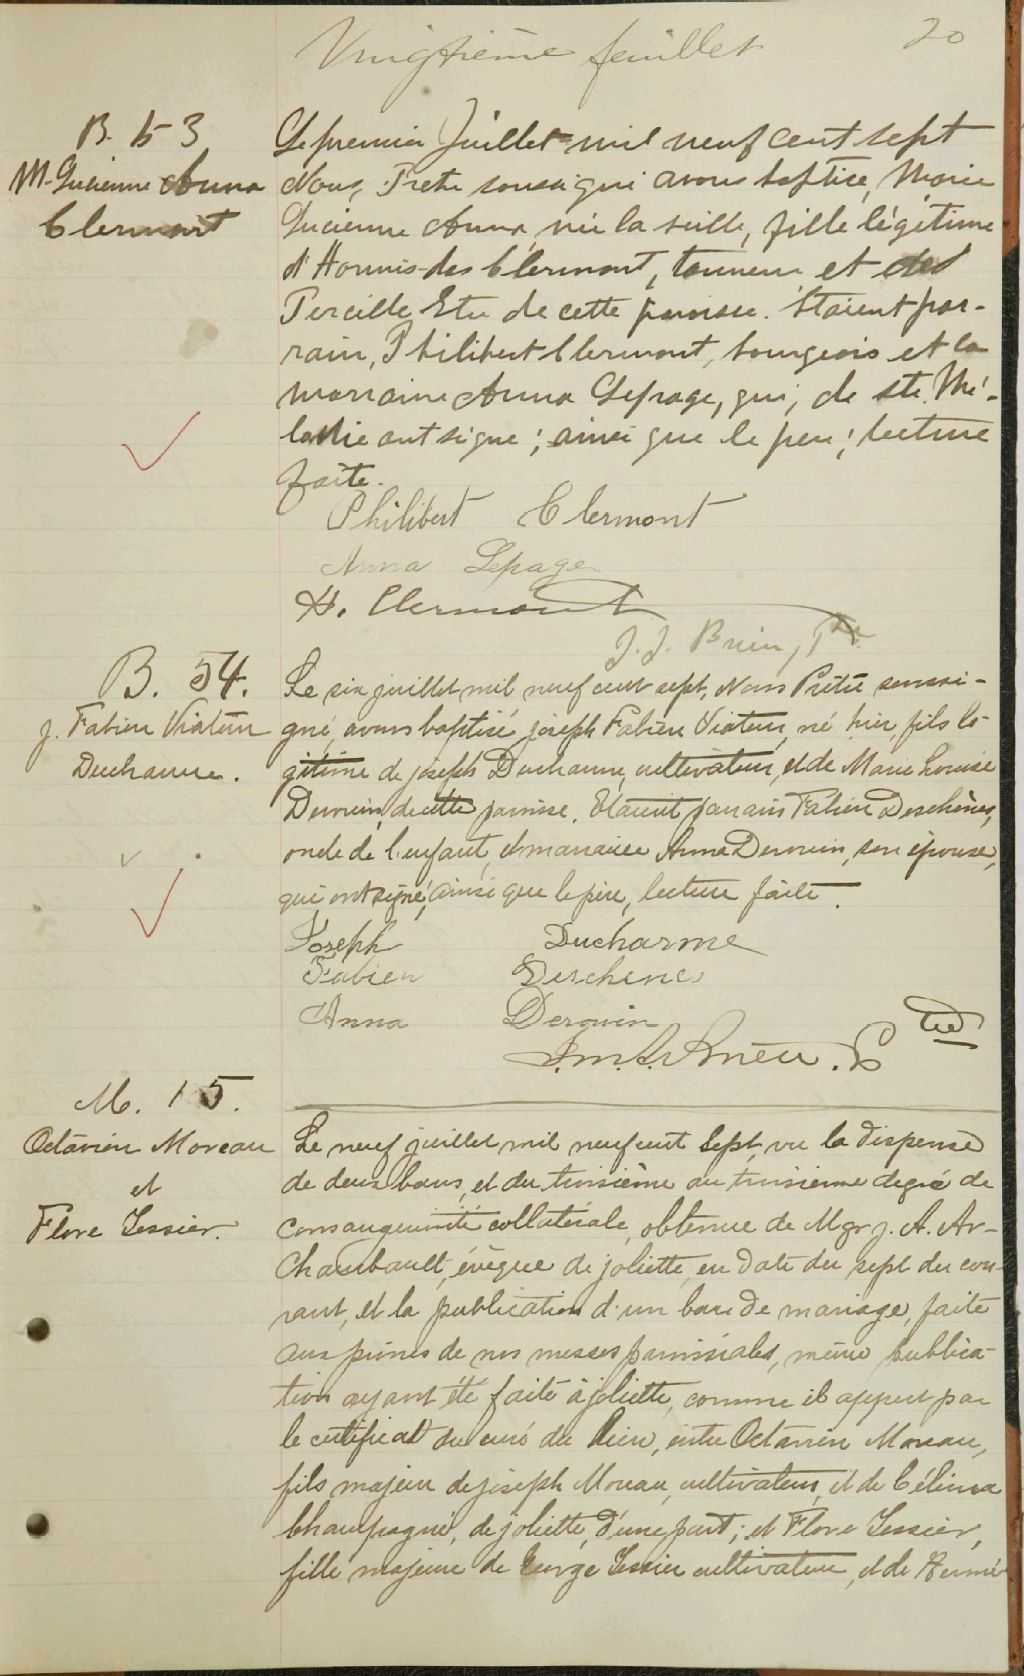 Vingtième feuillet 20
B. 53
M. Lucienne Anna
Clermont
Le premier Juillet mil neuf cent sept
Nous, Pretre soussigné avons baptisé, Marie
Lucienne Anna, née la veille, fille légitime
d'Hormisdas Clermont, tanneur et
de cette paroisse. Etaient par-
rain, Philibert Clermont, bourgeois et la
marraine Anna Lepage, qui, de Ste. Mé-
lanie ont signé; ainsi que le père; lecture
faite.
Philibert Clermont
Anna Lepage
H. Clermont
J. J. Ptre
B. 54.
j. Fabien Viateur
Ducharme.
Le six juillet mil neuf cent sept, Nous Prêtre soussi-
gné, avons baptisé joseph Fabien Viateur, né hier, fils lé-
gitime de joseph Ducharme, cultivateur, et de Marie Louise
Derouin, de cette paroisse. Etaient parrain Fabien Deschênes,
oncle de l'enfant, et marraine Anna Derouin, son épouse,
qui ont signé, ainsi que le père, lecture faite.
Joseph Ducharme
Fabien Deschenes
Anna Derouin
M. 15.
Octavien Moreau
et
Flore Tessier.
Le neuf juillet mil neuf cent sept, vu la dispense
de deux bans, et du troisième au troisième degré de
consanguinité collatérale, obtenue de Mgr j. A. Ar-
chambault, évêque de joliette, en date du sept du cou-
rant, et la publication d'un ban de mariage, faite
aux prônes de nos messes paroissiales, même publica-
tion ayant été faite à joliette, comme il appert par
le certificat du curé du lieu, entre Octavien Moreau,
fils majeur de joseph Moreau, cultivateur, et de Célina
Champagne, de joliette, d'une part; et Flore Tessier,
fille majeure de George Tessier cultivateur, et de Hermé-